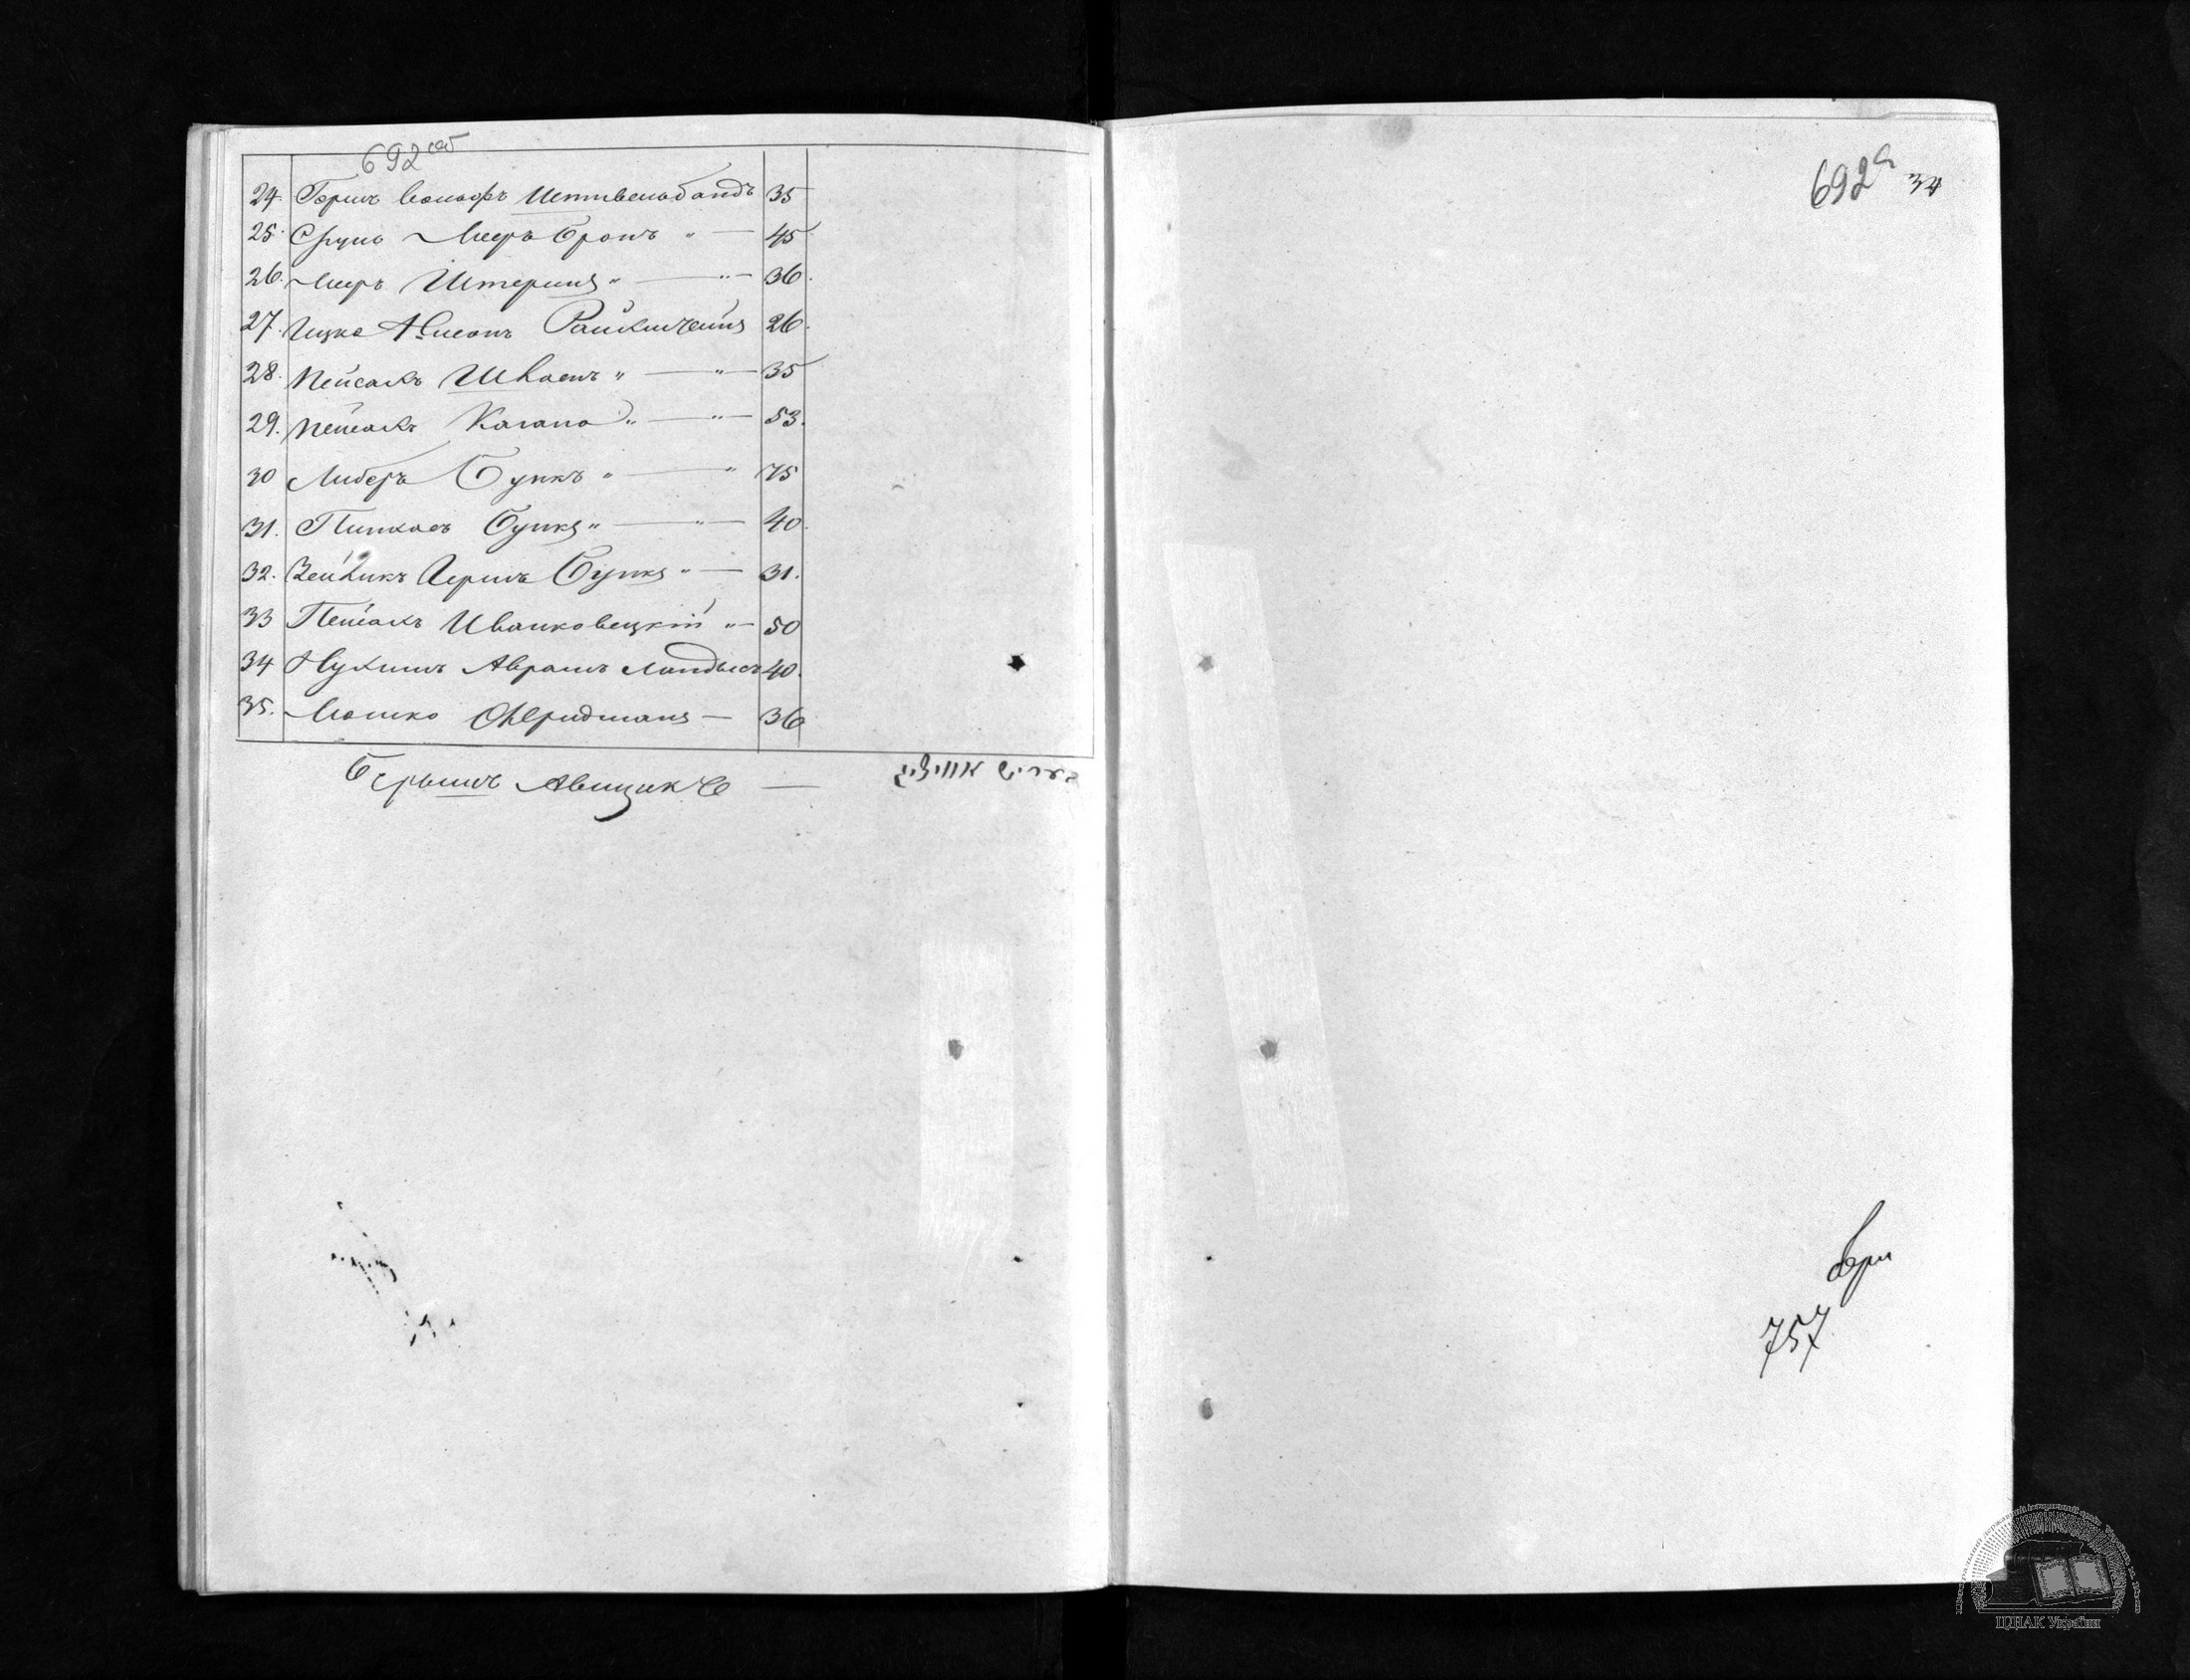 692 об
24. Герш Вольфъ Шттвельбандъ 35
25. Сруль Мееръ Бронъ " — 45
26. Мееръ Штернъ " — " — 36.
27. Ицко Нисонъ Райхштейнъ 26.
28. Пейсахъ Шваръ " — " — 35
29. Пейсахъ Кагана " — " — 53.
30 Либеръ Бункъ " — " 75
31. Пинхасъ Бункъ " — " — 40.
32. Зейвикъ Гершъ Бункъ " — 31.
33 Пейсахъ Иванковецкій " — 50
34 Нухимъ Аврамъ Ландысъ 40.
35. Мошко Фридманъ — 36
Берышъ Авицукъ —
692а 34
757
ЦДІАК України